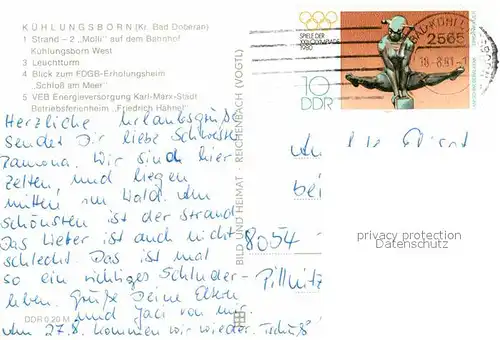 KÜHLUNGSBORN (Kr. Bad Doberan)
1 Strand – 2 „Molli" auf dem Bahnhof
Kühlungsborn West
3 Leuchtturm
4 Blick zum FDGB-Erholungsheim
„Schloß am Meer"
5 VEB Energieversorgung Karl-Marx-Stadt
Betriebsferienheim „Friedrich Hähnel"
Herzliche Urlaubsgrüße
sendet Dir liebe Schwester
Ramona. Wir sind hier
zelten, und liegen
mitten im Wald. Am
schönsten ist der Strand
Das Wetter ist auch nicht
schlecht. Das ist mal
so ein richtiges Schluder-
leben. Grüße Deine Eltern
und Jaci von mir
Am 27.8. kommen wir wieder. Tschüß
DDR 0 20 M
BILD UND HEIMAT · REICHENBACH (VOGTL)
SPIELE DER
XXII. OLYMPIADE
1980
10
DDR
BAD KÜHL
2565
18-8.81
An
bei
8054
Pillnitz
privacy protection
Datenschutz